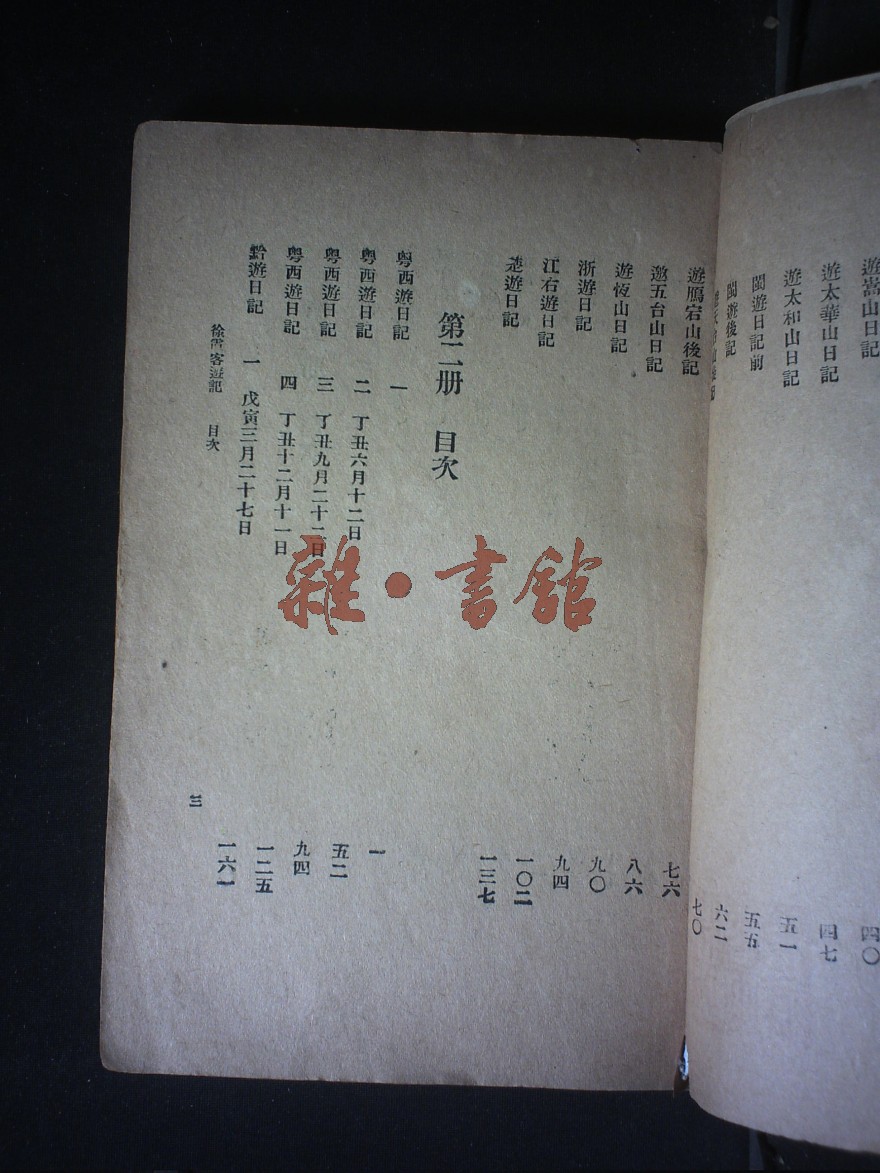 遊嵩山日記 四〇
遊太華山日記 四七
遊太和山日記 五一
閩遊日記前 五五
閩遊後記 六二
七〇
遊鴈宕山後記 七六
邀五台山日記 八六
遊恆山日記 九〇
浙遊日記 九四
江右遊日記 一〇二
楚遊日記 一三七
第二册 目次
粤西遊日記 一 一
粤西遊日記 二 丁丑六月十二日 五二
粤西遊日記 三 丁丑九月二十二日 九四
粤西遊日記 四 丁丑十二月十一日 一二五
黔遊日記 一 戊寅三月二十七日 一六一
徐霞客遊記 目次 三
雜·書館